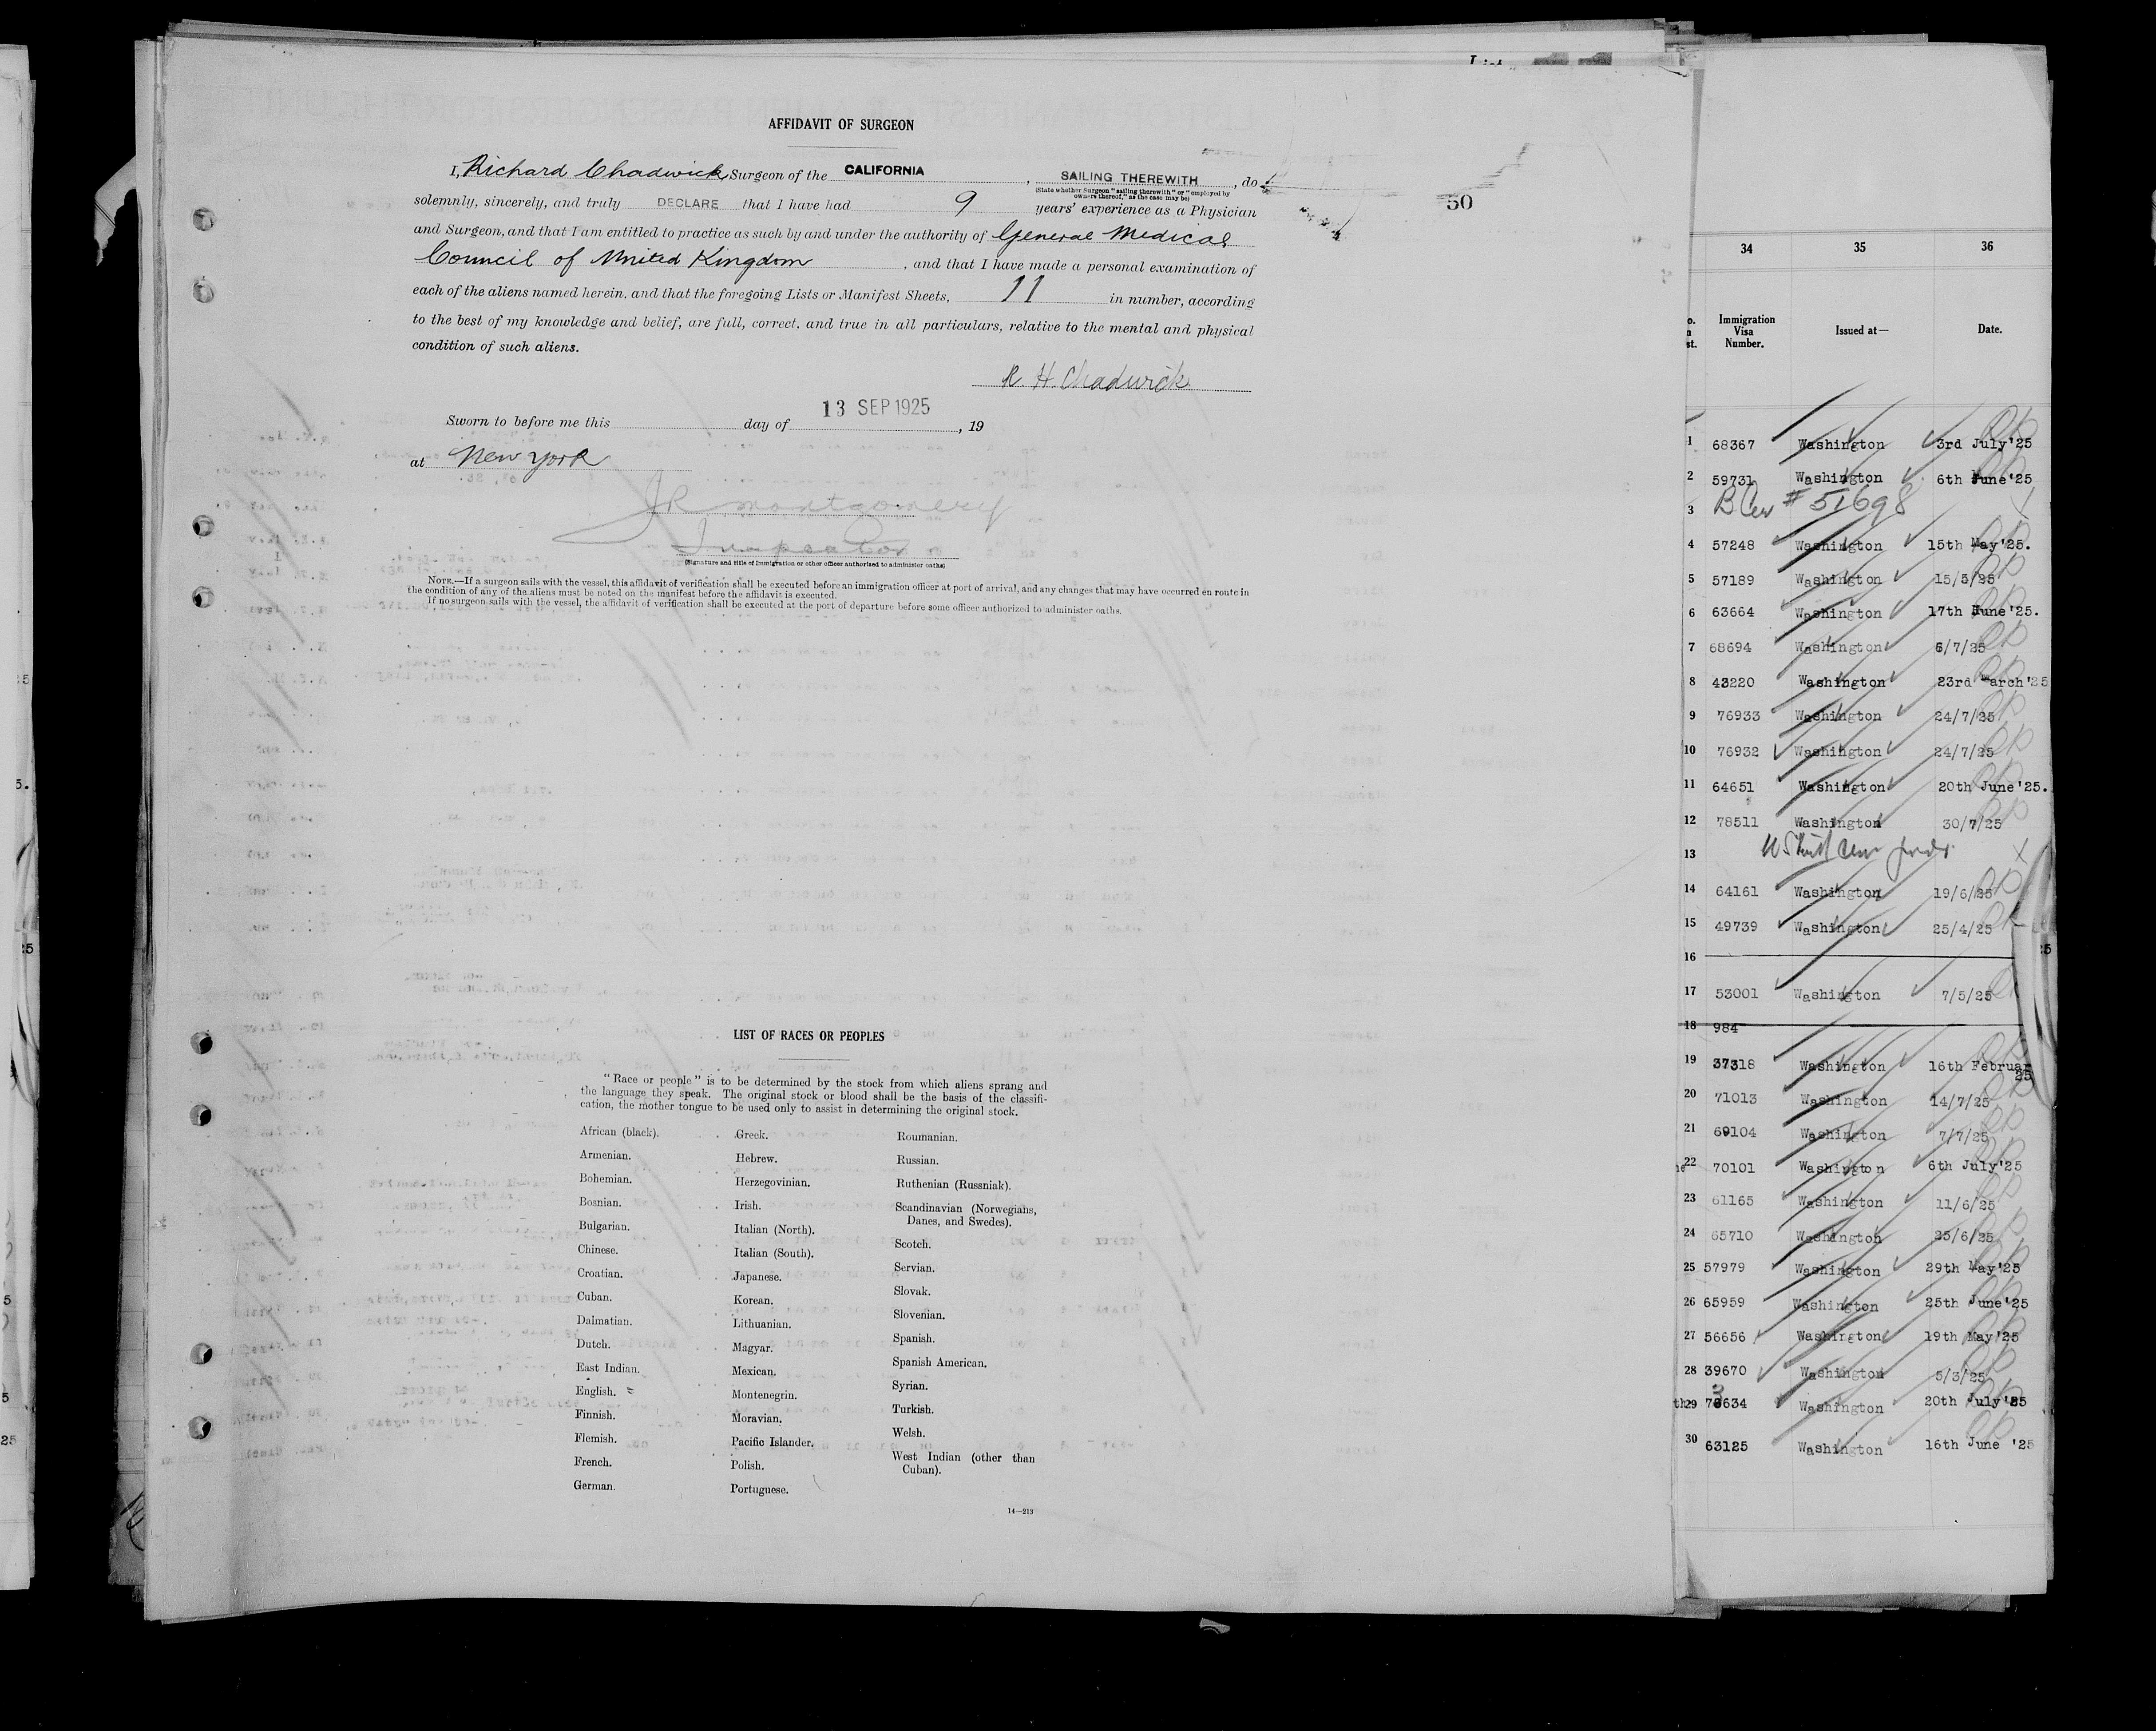 AFFIDAVIT OF SURGEON
I, Richard Chadwick Surgeon of the CALIFORNIA, SAILING THEREWITH, do
(State whether Surgeon "sailing therewith" or "employed by
owners thereof," as the case may be)
solemnly, sincerely, and truly DECLARE that I have had 9 years' experience as a Physician
and Surgeon, and that I am entitled to practice as such by and under the authority of General Medical
Council of United Kingdom, and that I have made a personal examination of
each of the aliens named herein, and that the foregoing Lists or Manifest Sheets, 11 in number, according
to the best of my knowledge and belief, are full, correct, and true in all particulars, relative to the mental and physical
condition of such aliens.
R. H. Chadwick
Sworn to before me this day of 13 SEP 1925, 19
at New York
JR Montgomery
Inspector
(Signature and title of immigration or other officer authorized to administer oaths)
NOTE.—If a surgeon sails with the vessel, this affidavit of verification shall be executed before an immigration officer at port of arrival, and any changes that may have occurred en route in
the condition of any of the aliens must be noted on the manifest before the affidavit is executed.
If no surgeon sails with the vessel, the affidavit of verification shall be executed at the port of departure before some officer authorized to administer oaths.
50
LIST OF RACES OR PEOPLES
"Race or people" is to be determined by the stock from which aliens sprang and
the language they speak. The original stock or blood shall be the basis of the classifi-
cation, the mother tongue to be used only to assist in determining the original stock.
African (black).
Armenian.
Bohemian.
Bosnian.
Bulgarian.
Chinese.
Croatian.
Cuban.
Dalmatian.
Dutch.
East Indian.
English.
Finnish.
Flemish.
French.
German.
Greek.
Hebrew.
Herzegovinian.
Irish.
Italian (North).
Italian (South).
Japanese.
Korean.
Lithuanian.
Magyar.
Mexican.
Montenegrin.
Moravian.
Pacific Islander.
Polish.
Portuguese.
Roumanian.
Russian.
Ruthenian (Russniak).
Scandinavian (Norwegians,
Danes, and Swedes).
Scotch.
Servian.
Slovak.
Slovenian.
Spanish.
Spanish American.
Syrian.
Turkish.
Welsh.
West Indian (other than
Cuban).
14—213
34 35 36
Immigration
Visa
Number.
Issued at—
Date.
1 68367 Washington 3rd July'25
2 59731 Washington 6th June'25
3 # 51698
4 57248 Washington 15th May'25.
5 57189 Washington 15/5/25
6 63664 Washington 17th June'25.
7 68694 Washington 6/7/25
8 43220 Washington 23rd March'25
9 76933 Washington 24/7/25
10 76932 Washington 24/7/25
11 64651 Washington 20th June'25.
12 78511 Washington 30/7/25
13
14 64161 Washington 19/6/25
15 49739 Washington 25/4/25
16
17 53001 Washington 7/5/25
18 984
19 37318 Washington 16th Februar
25
20 71013 Washington 14/7/25
21 69104 Washington 7/7/25
22 70101 Washington 6th July'25
23 61165 Washington 11/6/25
24 65710 Washington 25/6/25
25 57979 Washington 29th May'25
26 65959 Washington 25th June'25
27 56656 Washington 19th May'25
28 39670 Washington 5/3/25
29 Washington 20th July'25
30 63125 Washington 16th June '25